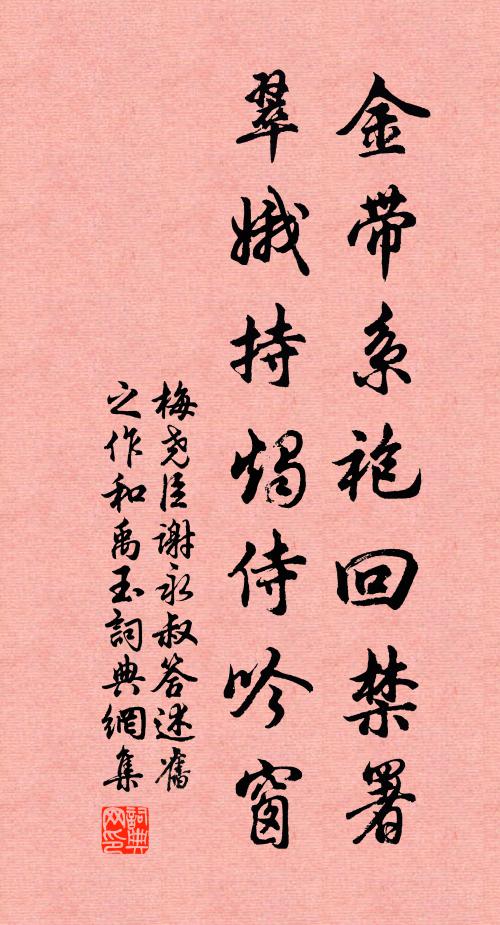 金带系袍回禁署
翠娥持烛侍吟窗
梅尧臣谢永叔答述舊
之作和禹玉詞典網集
詞典网印